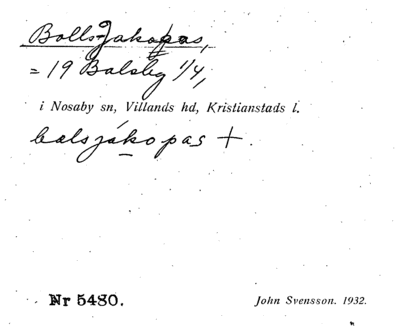 Bolls-Jakopas,
= 19 Balsby 1/4,
i Nosaby sn, Villands hd, Kristianstads l.
balsjákopas +.
Nr 5480.
John Svensson. 1932.